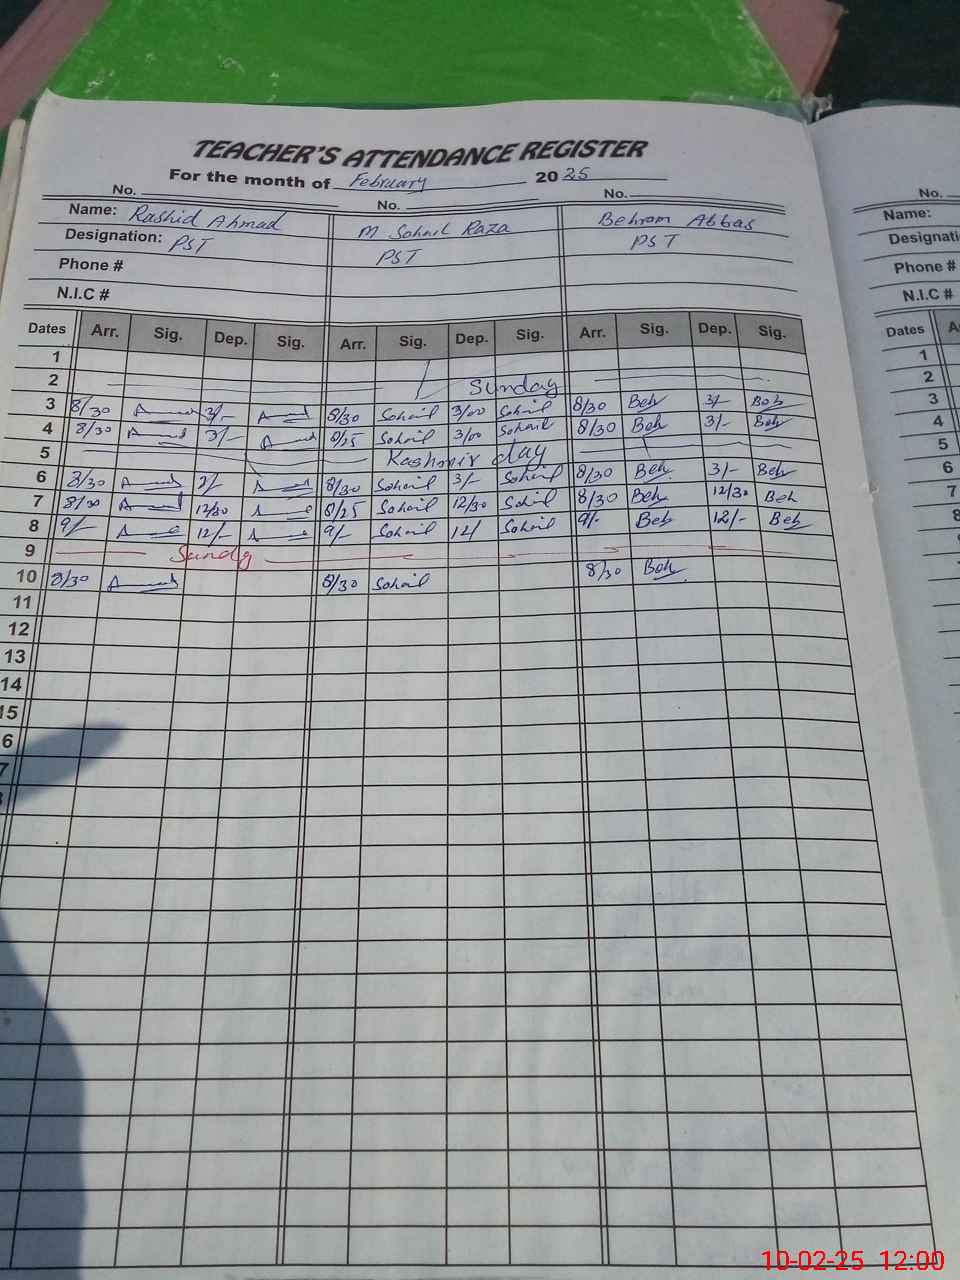 TEACHER'S ATTENDANCE REGISTER
For the month of February 2025
No. No. No.
Name: Rashid Ahmad M Sohail Raza Behram Abbas
Designation: PST PST PST
Phone #
N.I.C #
Dates Arr. Sig. Dep. Sig. Arr. Sig. Dep. Sig. Arr. Sig. Dep. Sig.
1
2 Sunday
3 8/30 3/- 8/30 Sohail 3/00 Sohail 8/30 Beh 3/- Beh
4 8/30 3/- 8/25 Sohail 3/00 Sohail 8/30 Beh 3/- Beh
5 Kashmir day
6 8/30 3/- 8/30 Sohail 3/- Sohail 8/30 Beh 3/- Beh
7 8/30 12/30 8/25 Sohail 12/30 Sohail 8/30 Beh 12/30 Beh
8 9/- 12/- 9/- Sohail 12/ Sohail 9/- Beh 12/- Beh
9 Sunday
10 8/30 8/30 Sohail 8/30 Beh
11
12
13
14
15
6
7
No.
Name:
Designati
Phone #
N.I.C #
Dates A
1
2
3
4
5
6
7
8
10-02-25 12:00